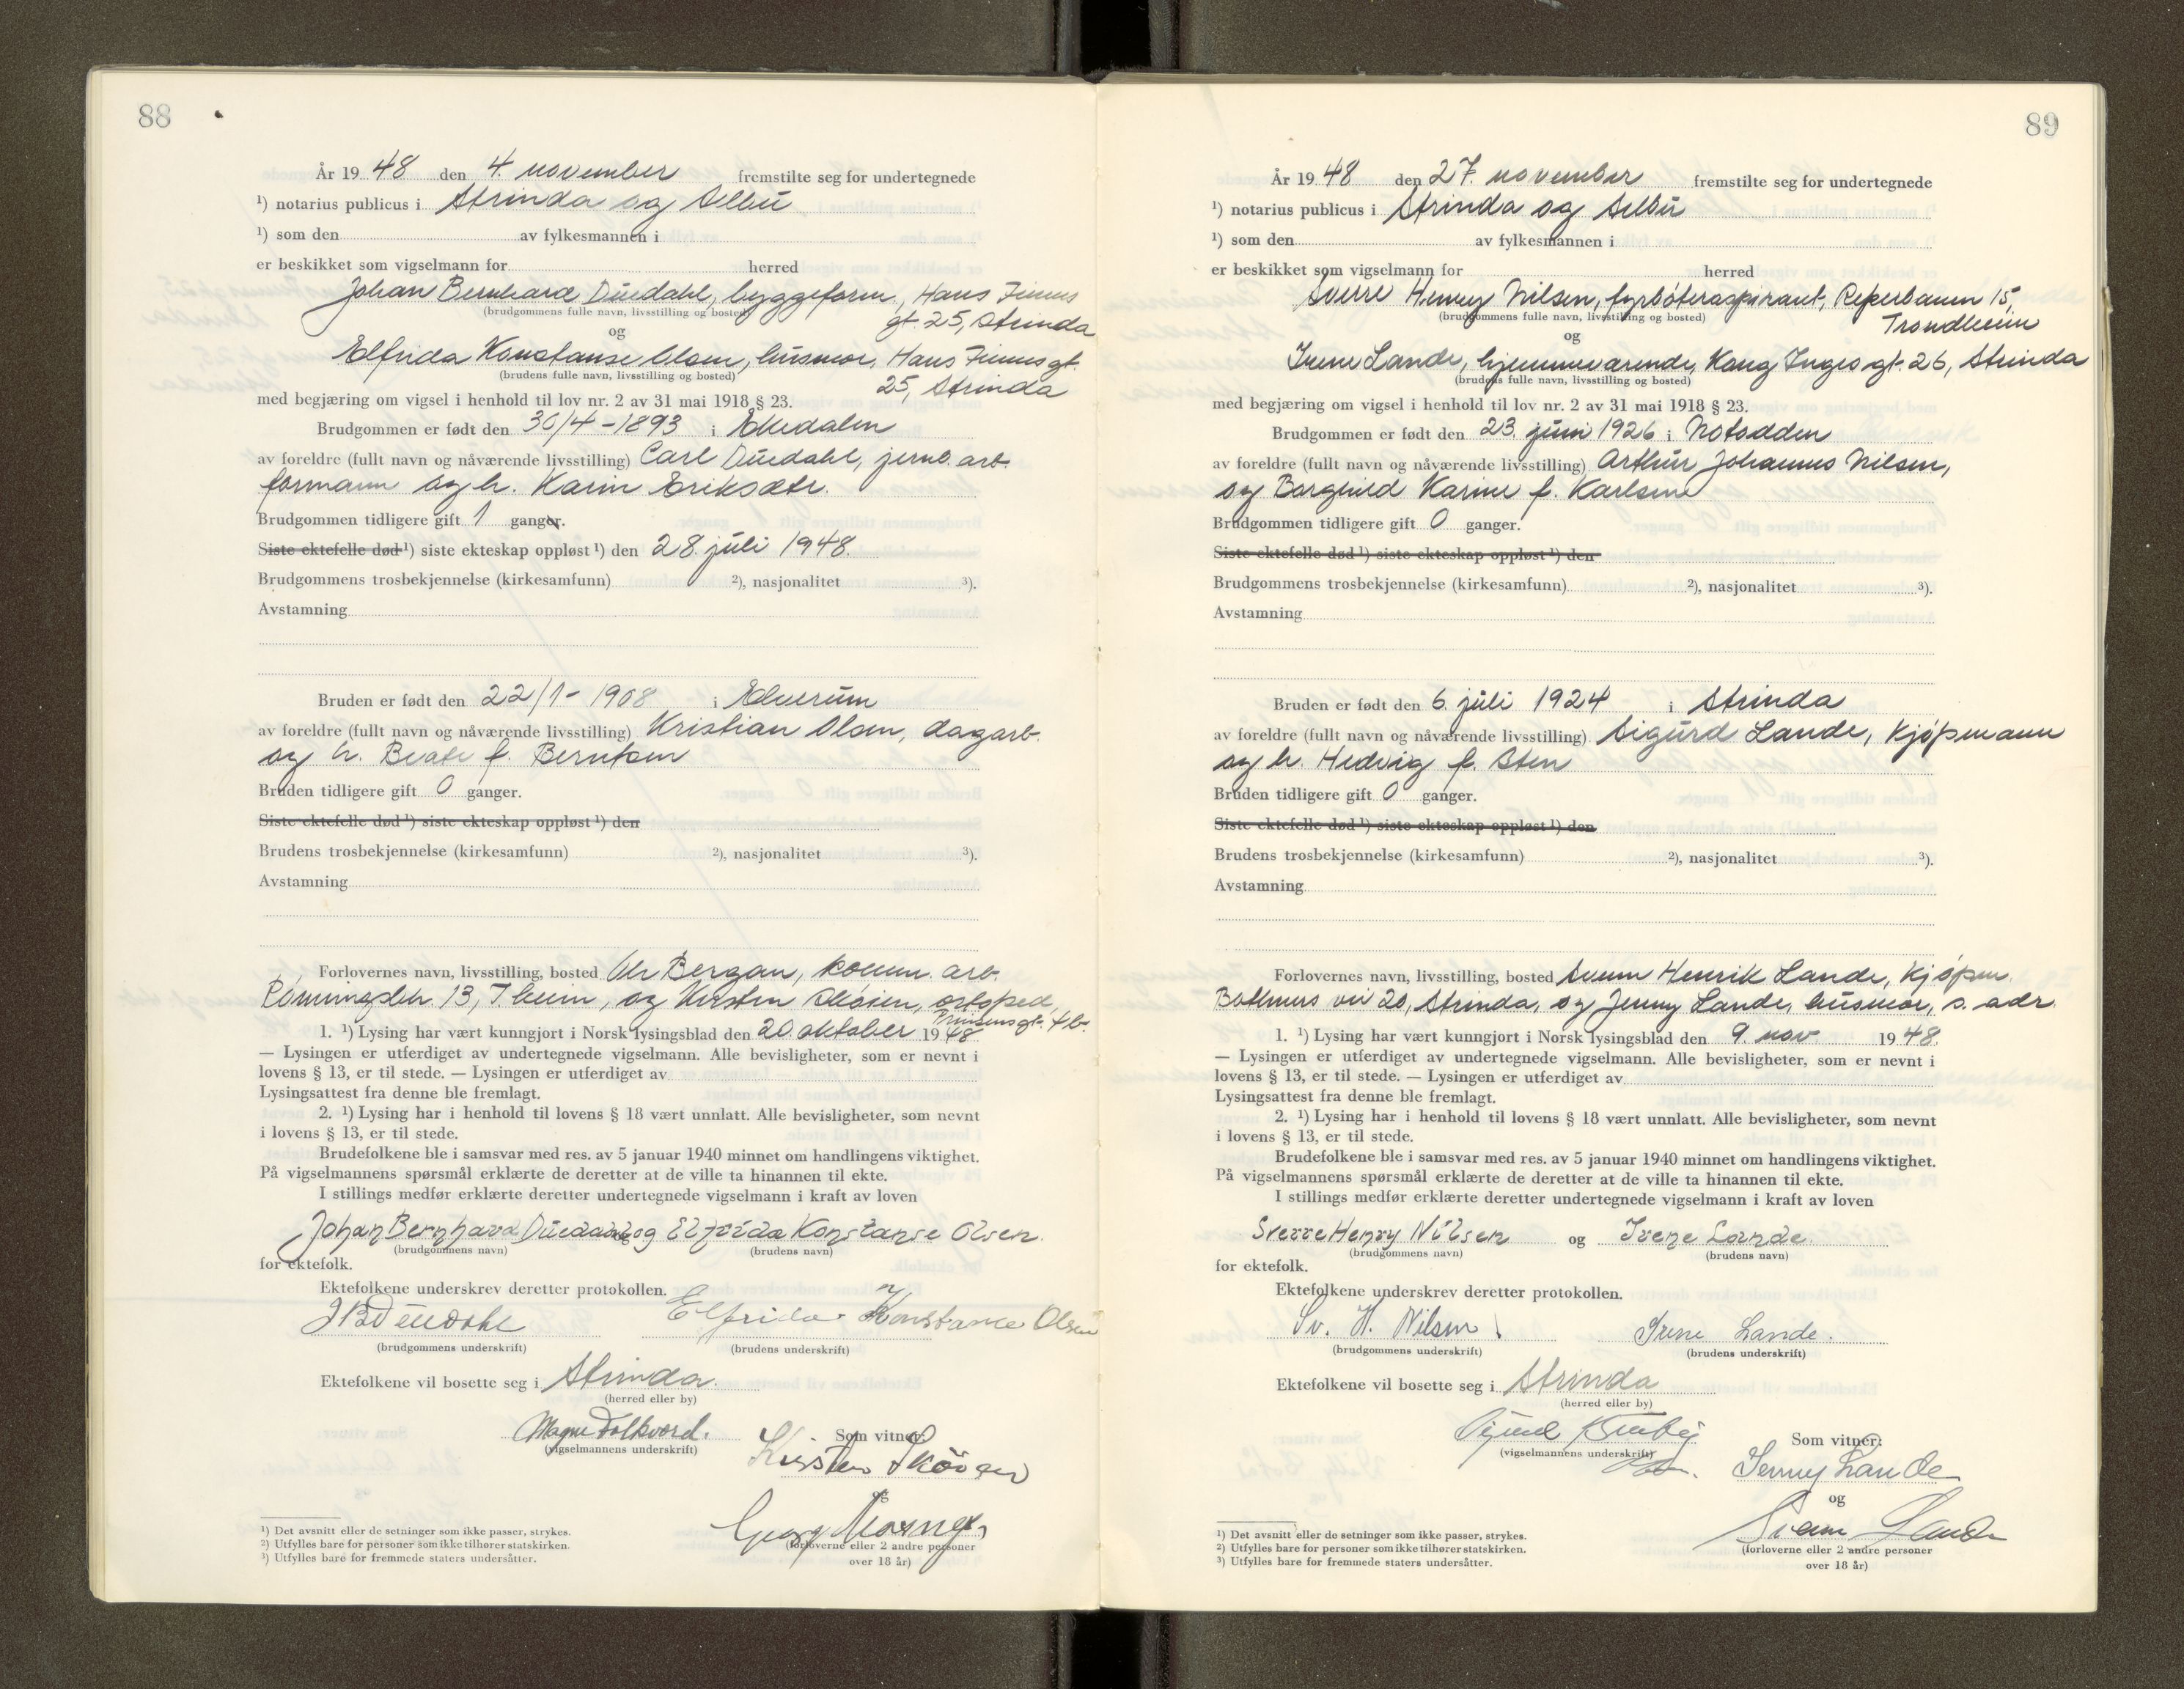 88
År 1948 den 4. november fremstilte seg for undertegnede
¹) notarius publicus i Strinda og Selbu
¹) som den av fylkesmannen i
er beskikket som vigselmann for herred
Johan Bernhard Duedahl, byggeform., Hans Finns
(brudgommens fulle navn, livsstilling og bosted)
gt. 25, Strinda
og
Elfrida Konstanse Olsen, husmor, Hans Finns gt.
(brudens fulle navn, livsstilling og bosted)
25, Strinda
med begjæring om vigsel i henhold til lov nr. 2 av 31 mai 1918 § 23.
Brudgommen er født den 30/4-1893 i
av foreldre (fullt navn og nåværende livsstilling) Carl Duedahl, jernb. arb.
formann og h. Karin Eriksdtr.
Brudgommen tidligere gift 1 ganger.
Siste ektefelle død ¹) siste ekteskap oppløst ¹) den 28. juli 1948.
Brudgommens trosbekjennelse (kirkesamfunn) ²), nasjonalitet ³).
Avstamning
Bruden er født den 22/1-1908 i Elverum
av foreldre (fullt navn og nåværende livsstilling) Kristian Olsen, dagarb.
og h. Beate f. Berntsen
Bruden tidligere gift 0 ganger.
Siste ektefelle død ¹) siste ekteskap oppløst ¹) den
Brudens trosbekjennelse (kirkesamfunn) ²), nasjonalitet ³).
Avstamning
Forlovernes navn, livsstilling, bosted Ole Bergan, komm. arb.
13, T.heim, og Kirsten Sköien, ortoped,
Prinsensgt. 4b.
1. ¹) Lysing har vært kunngjort i Norsk lysingsblad den 20. oktober 1948
— Lysingen er utferdiget av undertegnede vigselmann. Alle bevisligheter, som er nevnt i
lovens § 13, er til stede. — Lysingen er utferdiget av
Lysingsattest fra denne ble fremlagt.
2. ¹) Lysing har i henhold til lovens § 18 vært unnlatt. Alle bevisligheter, som nevnt
i lovens § 13, er til stede.
Brudefolkene ble i samsvar med res. av 5 januar 1940 minnet om handlingens viktighet.
På vigselmannens spørsmål erklærte de deretter at de ville ta hinannen til ekte.
I stillings medfør erklærte deretter undertegnede vigselmann i kraft av loven
Johan Bernhard Duedahl og Elfrida Konstanse Olsen.
(brudgommens navn) (brudens navn)
for ektefolk.
Ektefolkene underskrev deretter protokollen.
J B Duedahl Elfrida Konstance Olsen
(brudgommens underskrift) (brudens underskrift)
Ektefolkene vil bosette seg i Strinda.
(herred eller by)
Magne Folkvord. Som vitner:
(vigselmannens underskrift) Kirsten Sköien
og
Georg
(forloverne eller 2 andre personer
over 18 år)
¹) Det avsnitt eller de setninger som ikke passer, strykes.
²) Utfylles bare for personer som ikke tilhører statskirken.
³) Utfylles bare for fremmede staters undersåtter.
89
År 1948 den 27. november fremstilte seg for undertegnede
¹) notarius publicus i Strinda og Selbu
¹) som den av fylkesmannen i
er beskikket som vigselmann for herred
Sverre Henry Nilsen, fyrbøteraspirant, Reperbanen 15,
(brudgommens fulle navn, livsstilling og bosted)
Trondheim
og
Irene Lande, hjemmeværende, Kong Inges gt. 26, Strinda
(brudens fulle navn, livsstilling og bosted)
med begjæring om vigsel i henhold til lov nr. 2 av 31 mai 1918 § 23.
Brudgommen er født den 23. juni 1926 i Notodden
av foreldre (fullt navn og nåværende livsstilling) Arthur Johannes Nilsen,
og Borghild Karine f. Karlsen
Brudgommen tidligere gift 0 ganger.
Siste ektefelle død ¹) siste ekteskap oppløst ¹) den
Brudgommens trosbekjennelse (kirkesamfunn) ²), nasjonalitet ³).
Avstamning
Bruden er født den 6. juli 1924 i Strinda
av foreldre (fullt navn og nåværende livsstilling) Sigurd Lande, kjøpmann
og h. Hedvig f. Sten
Bruden tidligere gift 0 ganger.
Siste ektefelle død ¹) siste ekteskap oppløst ¹) den
Brudens trosbekjennelse (kirkesamfunn) ²), nasjonalitet ³).
Avstamning
Forlovernes navn, livsstilling, bosted Svenn Henrik Lande, kjøpm.
Bøttners vei 20, Strinda, og Jenny Lande, husmor, s. adr.
1. ¹) Lysing har vært kunngjort i Norsk lysingsblad den 9. nov 1948.
— Lysingen er utferdiget av undertegnede vigselmann. Alle bevisligheter, som er nevnt i
lovens § 13, er til stede. — Lysingen er utferdiget av
Lysingsattest fra denne ble fremlagt.
2. ¹) Lysing har i henhold til lovens § 18 vært unnlatt. Alle bevisligheter, som nevnt
i lovens § 13, er til stede.
Brudefolkene ble i samsvar med res. av 5 januar 1940 minnet om handlingens viktighet.
På vigselmannens spørsmål erklærte de deretter at de ville ta hinannen til ekte.
I stillings medfør erklærte deretter undertegnede vigselmann i kraft av loven
Sverre Henry Nilsen og Irene Lande.
(brudgommens navn) (brudens navn)
for ektefolk.
Ektefolkene underskrev deretter protokollen.
Sv. H. Nilsen Irene Lande.
(brudgommens underskrift) (brudens underskrift)
Ektefolkene vil bosette seg i Strinda
(herred eller by)
Som vitner:
(vigselmannens underskrift) Jenny Lande
og
Svenn Lande
(forloverne eller 2 andre personer
over 18 år)
¹) Det avsnitt eller de setninger som ikke passer, strykes.
²) Utfylles bare for personer som ikke tilhører statskirken.
³) Utfylles bare for fremmede staters undersåtter.